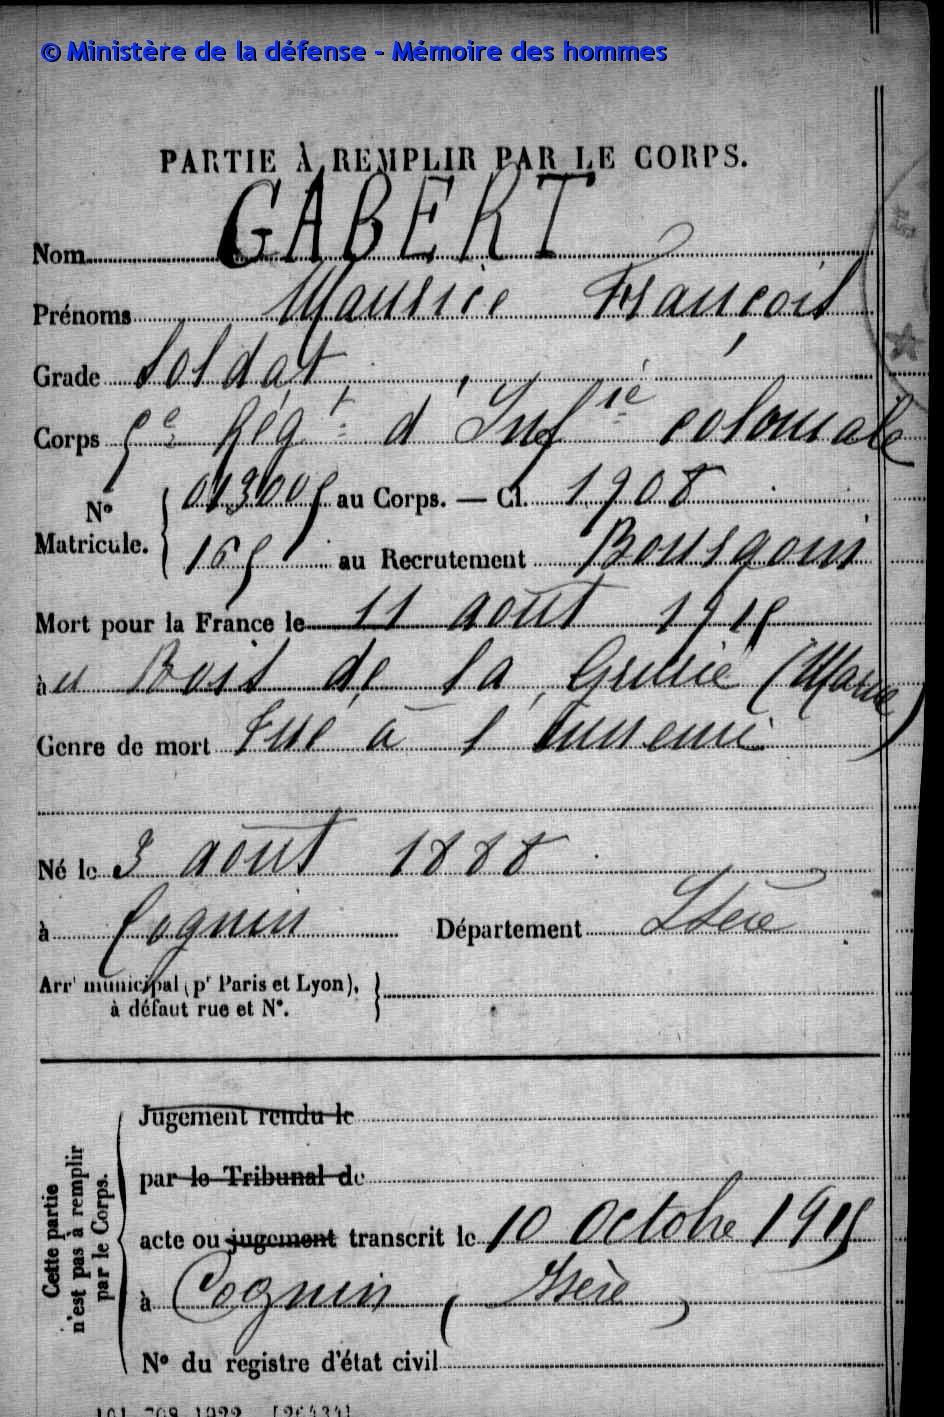 © Ministère de la défense - Mémoire des hommes
PARTIE À REMPLIR PAR LE CORPS.
Nom GABERT
Prénoms Maurice François
Grade Soldat
Corps 5e Régt d'Infie coloniale
No Matricule. { 013005 au Corps. — Cl. 1908
165 au Recrutement Bourgoin
Mort pour la France le 11 août 1915
à u Bois de la Grurie (Marne)
Genre de mort Tué à l'ennemi
Né le 3 août 1888
à Cognin Département Isère
Arrt municipal (pr Paris et Lyon), }
à défaut rue et No.
Cette partie
n'est pas à remplir
par le Corps.
Jugement rendu le
par le Tribunal de
acte ou jugement transcrit le 10 Octobre 1915
à Cognin (Isère)
No du registre d'état civil
101.708.1922. [26434]